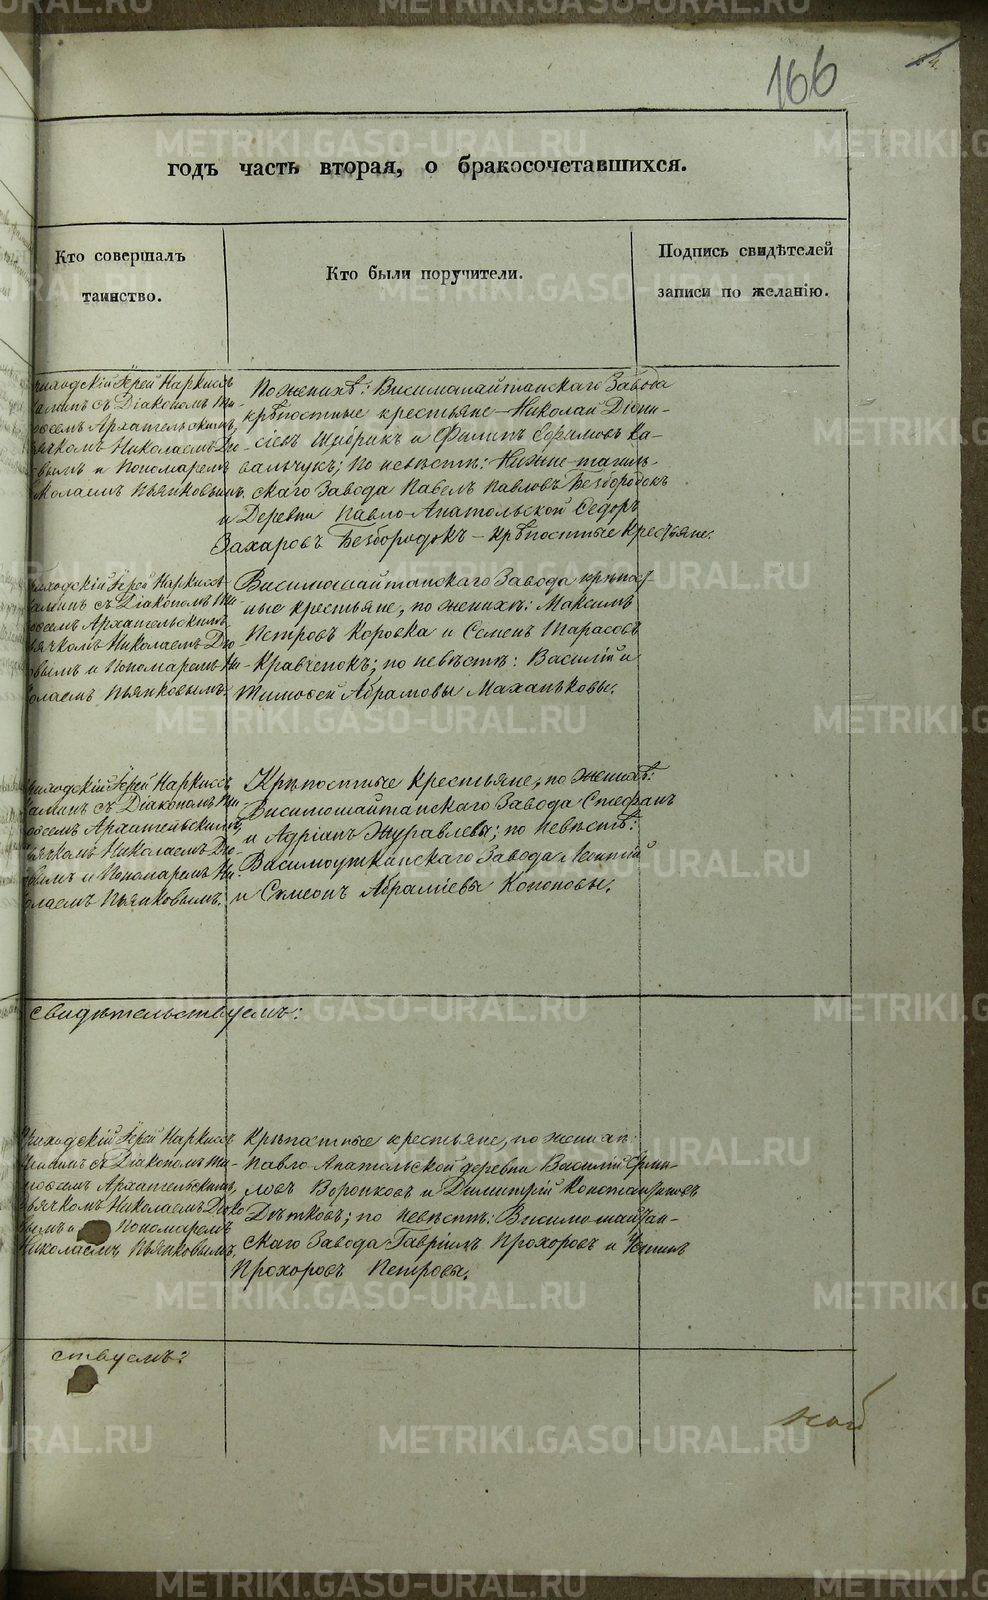 166
годъ часть вторая, о бракосочетавшихся.
Кто совершалъ
таинство.
Кто были поручители.
Подпись свидѣтелей
записи по желанію.
приходскій Іерей Наркиссъ
съ Діакономъ Ти-
моѳеемъ Архангельскимъ,
Дьячкомъ Николаемъ Ди-
ковымъ и Пономаремъ
Николаемъ Пьянковымъ.
По женихѣ: Висимошайтанскаго Завода
крѣпостные крестьяне Николай Діони-
сіевъ Щибрикъ и Филипъ Ефимовъ Ка-
вальчукъ; по невѣстѣ: Нижне-тагиль-
скаго Завода Павелъ Павловъ Безбородокъ
и Деревни Павло-Анатольской Ѳедоръ
Захаровъ Безбородокъ – крѣпостные крестьяне.
приходскій Іерей Наркиссъ
съ Діакономъ Ти-
моѳеемъ Архангельскимъ,
Дьячкомъ Николаемъ Ди-
ковымъ и Пономаремъ Ни-
колаемъ Пьянковымъ.
Висимошайтанскаго Завода крѣпост-
ные крестьяне, по женихѣ: Максимъ
Петровъ Коровка и Семенъ Тарасовъ
Кравченокъ; по невѣстѣ: Василій и
Тимоѳей Абрамовы Маханьковы.
Приходскій Іерей Наркиссъ
съ Діакономъ Ти-
моѳеемъ Архангельскимъ,
Дьячкомъ Николаемъ Ди-
ковымъ и Пономаремъ Ни-
колаемъ Пьянковымъ.
Крѣпостные крестьяне, по женихѣ:
Висимошайтанскаго Завода Стефанъ
и Адріанъ Журавлевы; по невѣстѣ:
Висимоуткинскаго Завода Леонтій
и Сѵмеонъ Абрамiевы Кононовы.
свидѣтельствуемъ:
Приходскій Іерей Наркиссъ
съ Діакономъ Ти-
моѳеемъ Архангельскимъ,
Дьячкомъ Николаемъ Дико
вымъ и Пономаремъ
Николаемъ Пьянковымъ.
Крѣпостные крестьяне, по женихѣ:
Павло-Анатольской деревни Василій
Воронковъ и Димитрій Константиновъ
Дѣтковъ; по невѣстѣ: Висимошайтан-
скаго Завода Гавріилъ Прохоровъ и
Прохоровъ Петровы.
ствуемъ:
METRIKI.GASO-URAL.RU